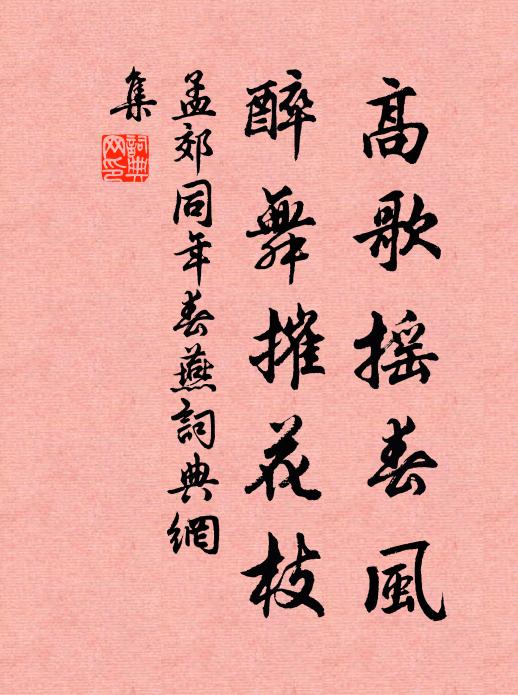 高歌摇春風
醉舞摧花枝
孟郊同年春燕詞典網
集
詞典網印